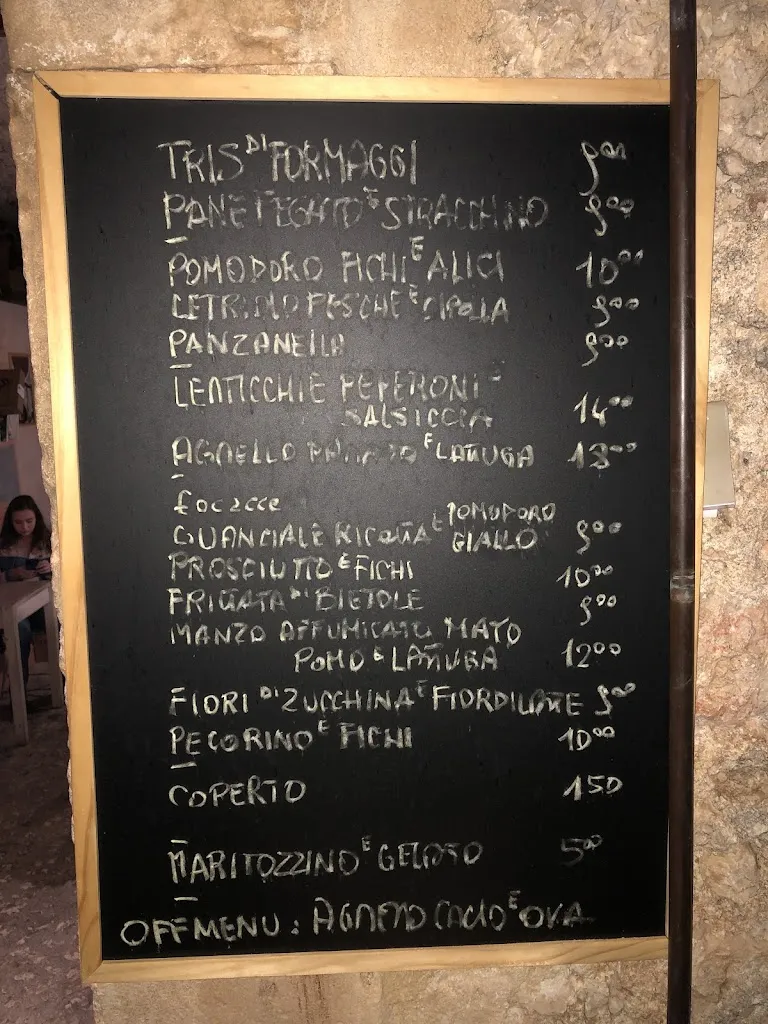 TRIS DI FORMAGGI 900
PANE FEGATO E STRACCHINO 900
POMODORO FICHI E ALICI 1000
CETRIOLO PESCHE E CIPOLLA 900
PANZANELLA 900
LENTICCHIE PEPERONI E
SALSICCIA 1400
AGNELLO E LATTUGA 1800
focacce
GUANCIALE RICOTTA E POMODORO
GIALLO 900
PROSCIUTTO E FICHI 1000
FRITTATA DI BIETOLE 900
MANZO AFFUMICATO MAIO
POMO E LATTUGA 1200
FIORI DI ZUCCHINA E FIORDILATTE 900
PECORINO E FICHI 1000
COPERTO 150
MARITOZZINO E GELATO 500
OFF MENU: AGNELLO CACIO E OVA